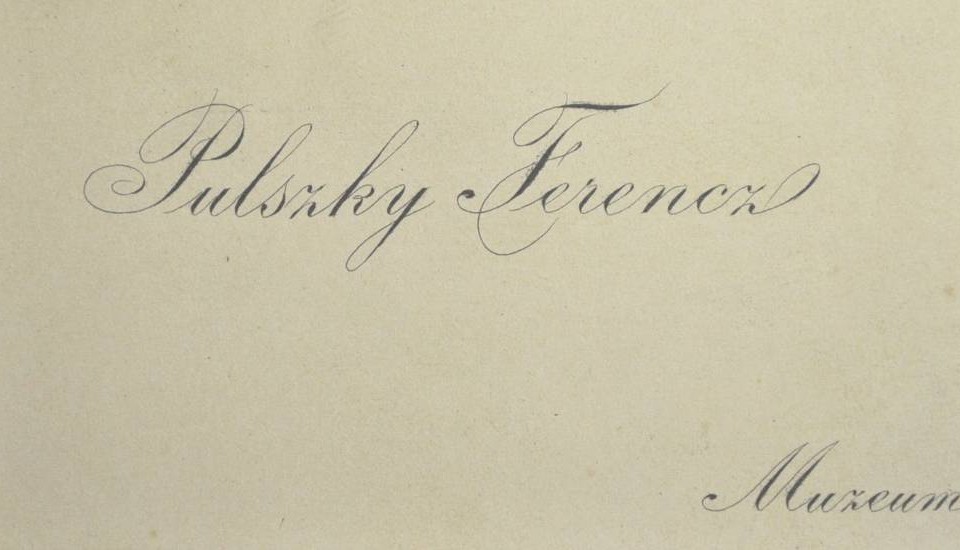 Pulszky Ferencz
Muzeum